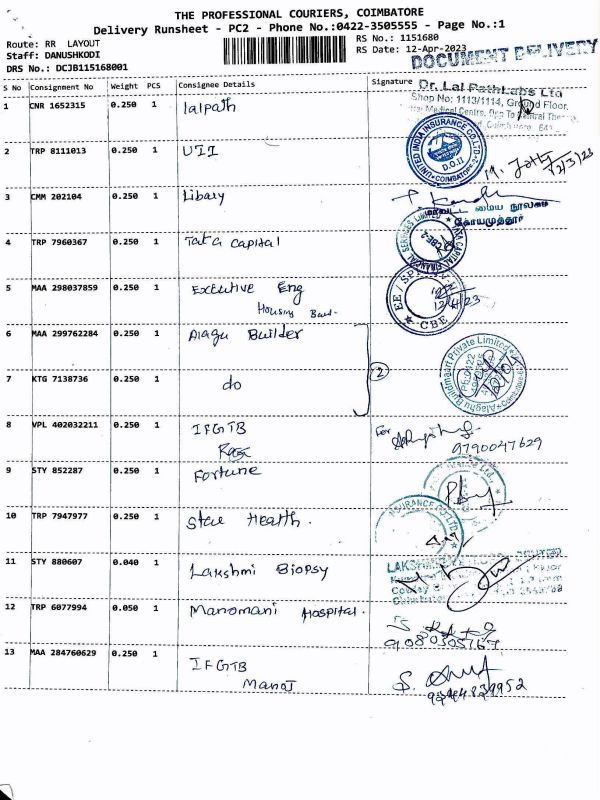 THE PROFESSIONAL COURIERS, COIMBATORE
Delivery Runsheet - PC2 - Phone No.:0422-3505555 - Page No.:1
Route: RR LAYOUT
RS No.: 1151680
Staff: DANUSHKODI
RS Date: 12-Apr-2023
DOCUMENT DELIVERY
DRS No.: DCJB115168001
S No Consignment No Weight PCS Consignee Details Signature
Dr. Lal PathLabs Ltd
Shop No: 1113/1114, Ground Floor,
1 CNR 1652315 0.250 1 lalpath
UNITED INDIA INSURANCE CO.LTD. COIMBATORE
D.O.II
2 TRP 8111013 0.250 1 UII
12/3/23
3 CMM 202104 0.250 1 Libary
மைய நூலகம்
கோயமுத்தூர்
4 TRP 7960367 0.250 1 Tata Capital
TATA CAPITAL FINANCIAL SERVICES LIMITED
CBE-2
5 MAA 298037859 0.250 1 Executive Eng
Housing
EE / SP
CBE
6 MAA 299762284 0.250 1 Alagu Builder
7 KTG 7138736 0.250 1 do
2
Alaghu Buildmart Private Limited
8 VPL 402032211 0.250 1 IFGTB
For
9790047629
9 STY 852287 0.250 1 Fortune
10 TRP 7947977 0.250 1 Star Health.
INSURANCE CO.LTD
11 STY 880607 0.040 1 Lakshmi Biopsy
12 TRP 6077994 0.050 1 Manomani Hospital.
13 MAA 284760629 0.250 1 IFGTB
Manoj